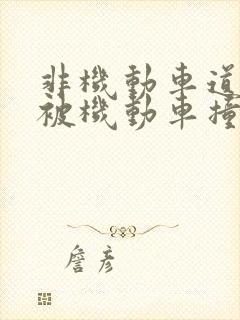 非機動車道
被機動車撞
詹彥